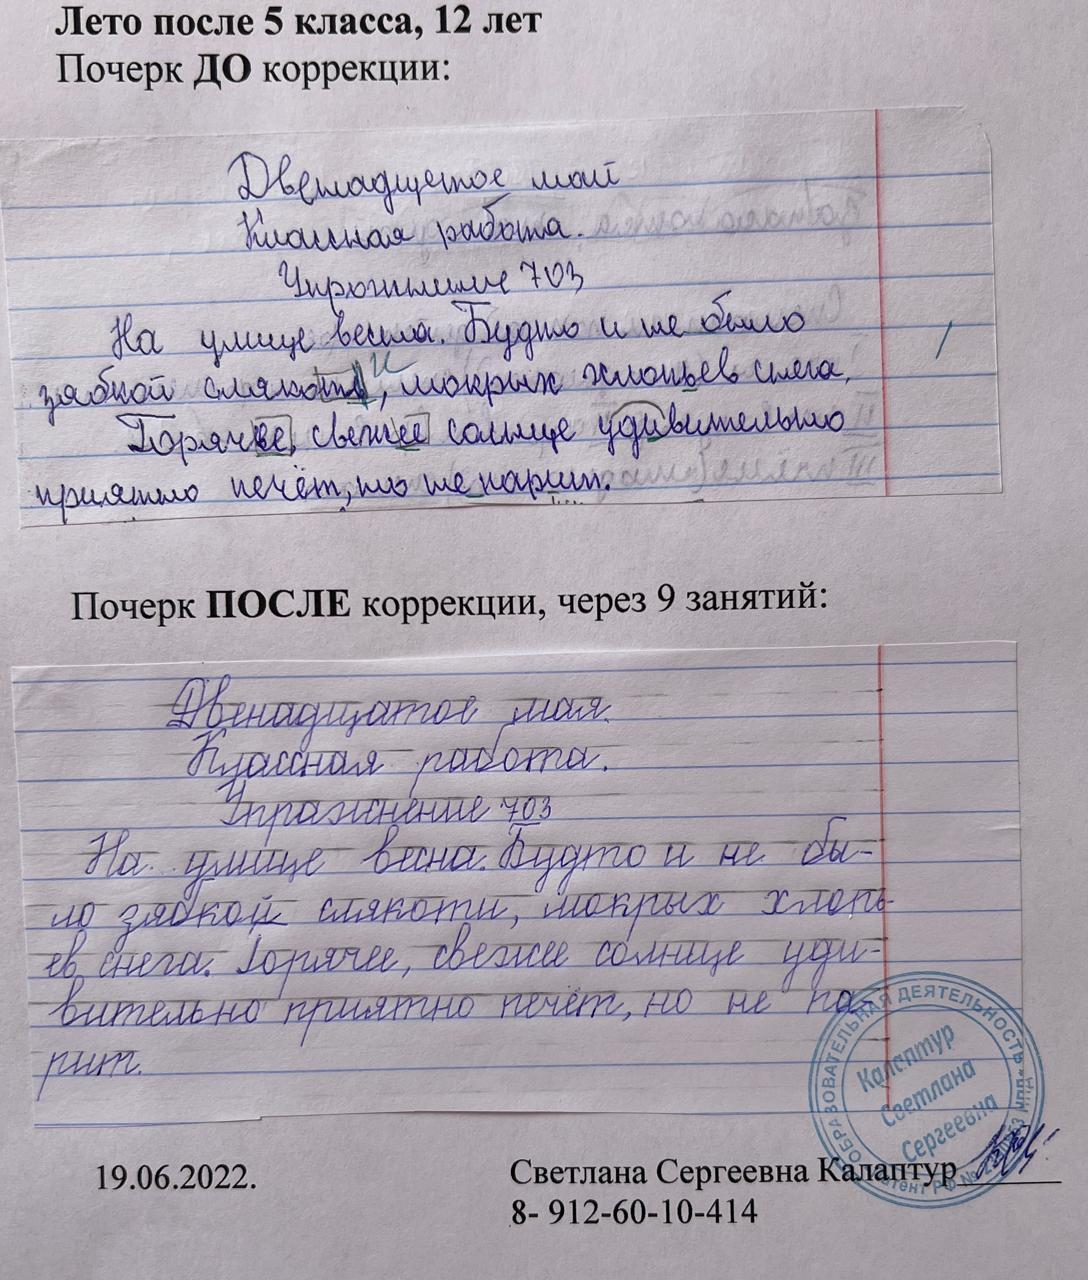 Лето после 5 класса, 12 лет
Почерк ДО коррекции:
Двенадцатое май
Классная работа.
Упражнение 703
На улице весна. Будто и не было
зябкой слякоти, мокрых хлопьев снега.
Горячее, свежее солнце удивительно
приятно печёт, но не парит.
Почерк ПОСЛЕ коррекции, через 9 занятий:
Двенадцатое мая.
Классная работа.
Упражнение 703
На улице весна. Будто и не бы-
ло зябкой слякоти, мокрых хлопь-
ев снега. Горячее, свежее солнце уди-
вительно приятно печёт, но не па-
рит.
ОБРАЗОВАТЕЛЬНАЯ ДЕЯТЕЛЬНОСТЬ
Калаптур
Светлана
Сергеевна
19.06.2022.
Светлана Сергеевна Калаптур
8- 912-60-10-414